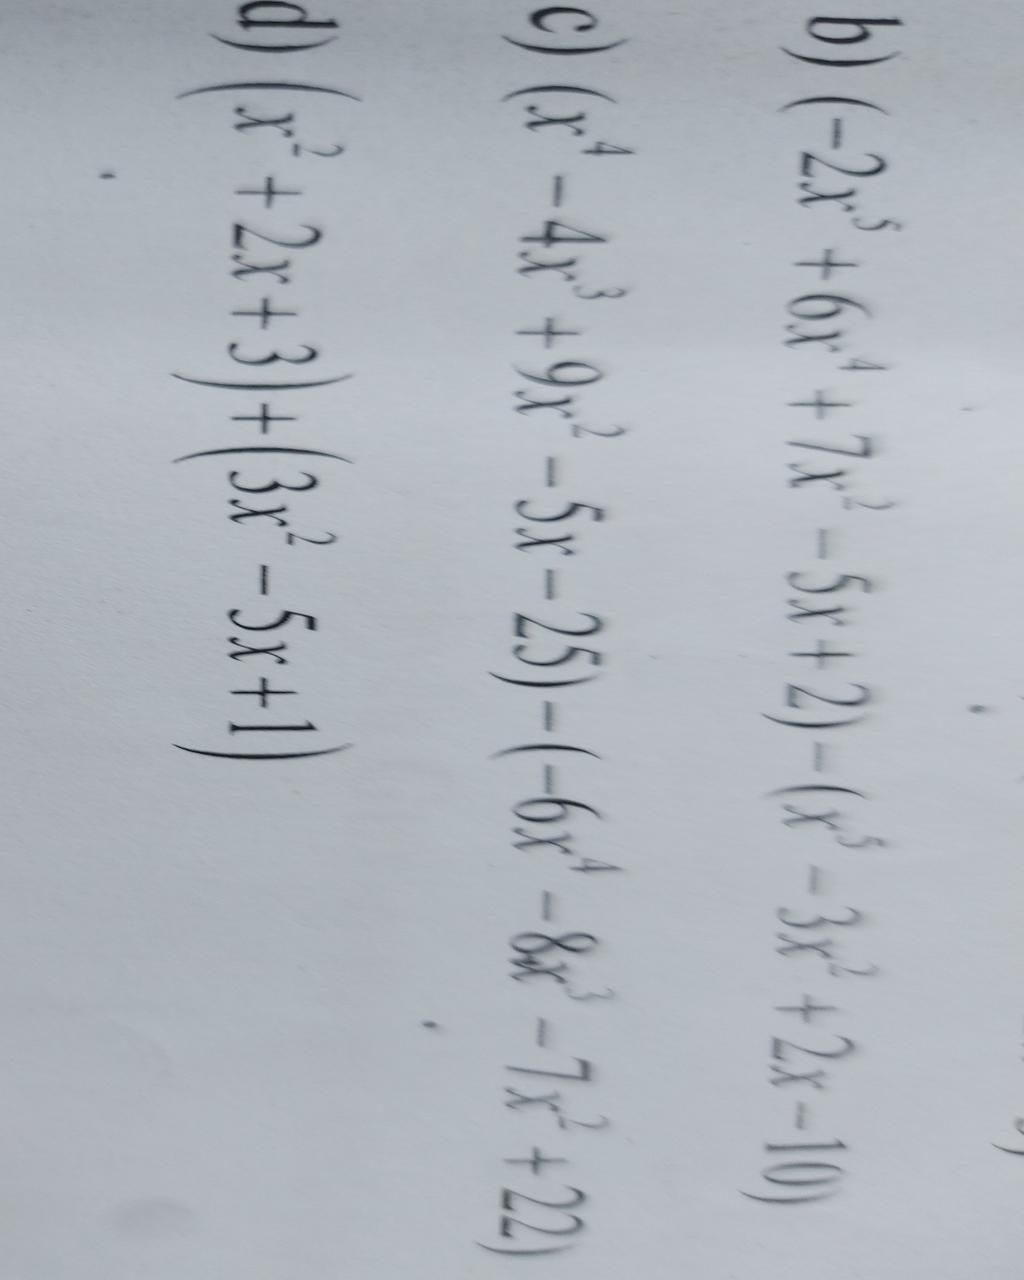 b) (-2x⁵ + 6x⁴ + 7x² - 5x + 2) - (x⁵ - 3x² + 2x - 10)
c) (x⁴ - 4x³ + 9x² - 5x - 25) - (-6x⁴ - 8x³ - 7x² + 22)
d) (x² + 2x + 3) + (3x² - 5x + 1)